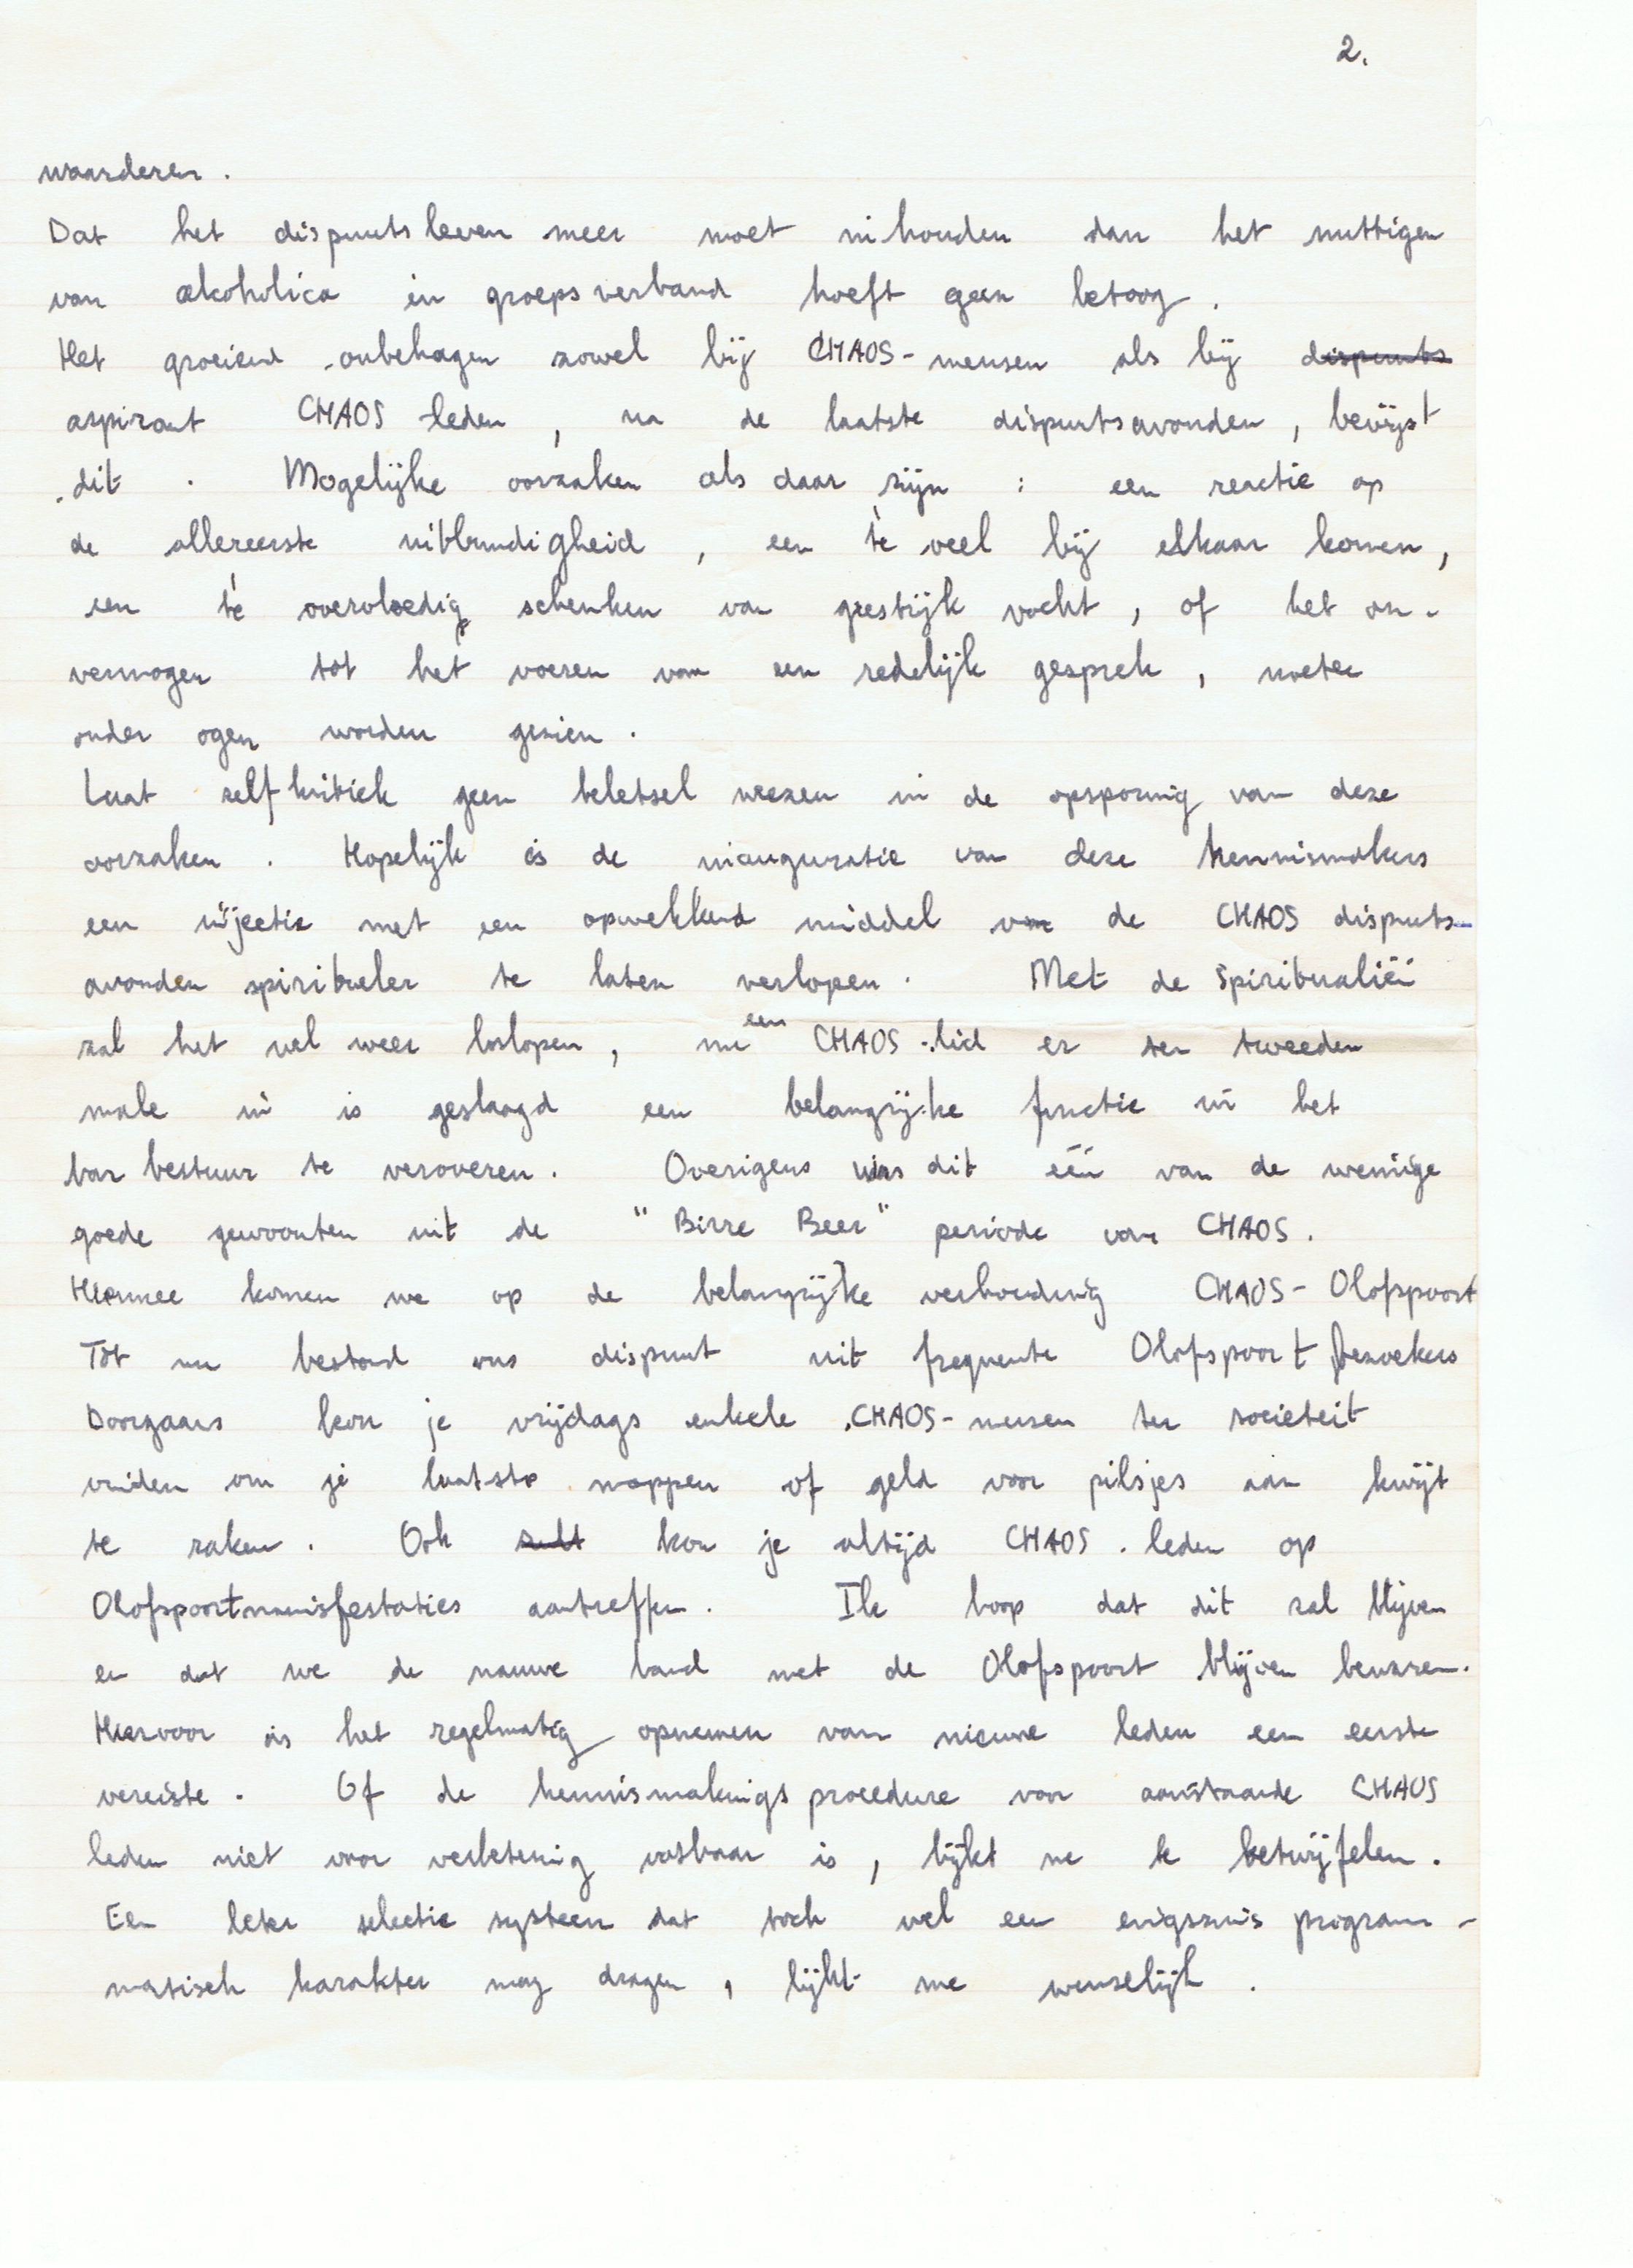 2.
waarderen.
Dat het disputsleven meer moet inhouden dan het nuttigen
van alkoholica in groepsverband hoeft geen betoog.
Het groeiend onbehagen zowel bij CHAOS-mensen als bij disputs
aspirant CHAOS leden, na de laatste disputsavonden, bewijst
dit. Mogelijke oorzaken als daar zijn : een reactie op
de allereerste uitbundigheid, een te veel bij elkaar komen,
een té overvloedig schenken van geestrijk vocht, of het on-
vermogen tot het voeren van een redelijk gesprek, moeten
onder ogen worden gezien.
Laat zelfkritiek geen beletsel wezen in de opsporing van deze
oorzaken. Hopelijk is de inauguratie van deze kennismakers
een injectie met een opwekkend middel om de CHAOS disputs-
avonden spiritueler te laten verlopen. Met de spiritualiën
zal het wel weer loslopen, nu een CHAOS-lid er ten tweeden
male in is geslaagd een belangrijke functie in het
barbestuur te veroveren. Overigens was dit één van de weinige
goede gewoonten uit de "Birre Beer" periode van CHAOS.
Hiermee komen we op de belangrijke verhouding CHAOS - Olofspoort
Tot nu bestond ons dispuut uit frequente Olofspoort bezoekers
Doorgaans kon je vrijdags enkele CHAOS-mensen ter societeit
vinden om je laatste moppen of geld voor pilsjes aan kwijt
te raken. Ook kon je altijd CHAOS-leden op
Olofspoortmanisfestaties aantreffen. Ik hoop dat dit zal blijven
en dat we de nauwe band met de Olofspoort blijven bewaren.
Hiervoor is het regelmatig opnemen van nieuwe leden een eerste
vereiste. Of de kennismakingsprocedure voor aanstaande CHAOS
leden niet voor verbetering vatbaar is, lijkt me te betwijfelen.
Een beter selectie systeem dat toch wel een enigszins program-
matisch karakter mag dragen, lijkt me wenselijk.